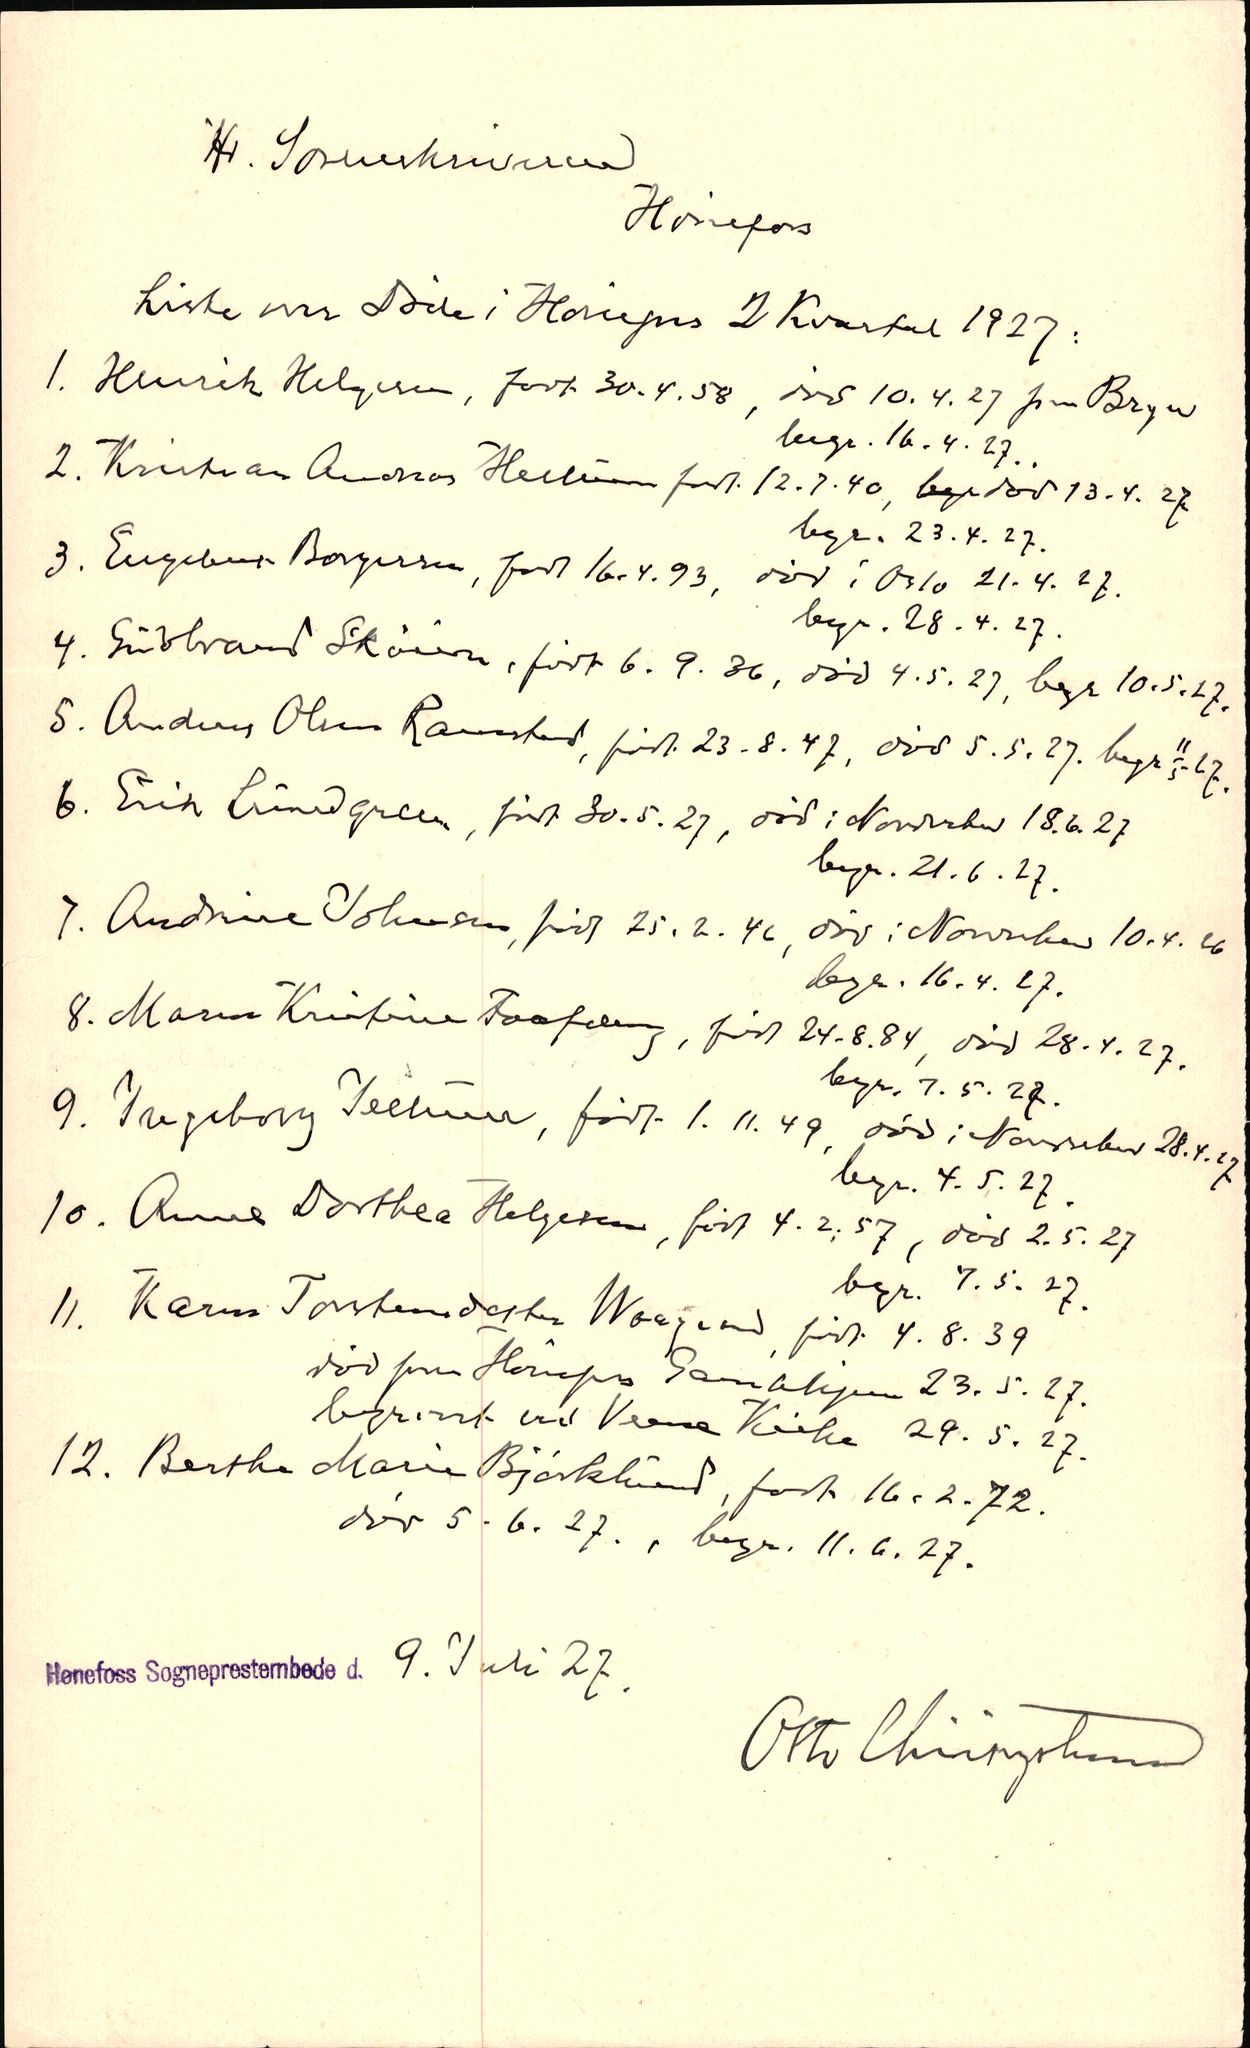 Hr. Sorenskriveren
Hönefos
Liste over Döde i Hönefos 2 Kvartal 1927:
1. Henrik Helgesen, född 30.4.58, död 10.4.27 paa Bryn
begr. 16.4.27.
2. Kristian Andreas Hellum född 12.7.40, begr död 13.4.27
begr. 23.4.27.
3. Engebret Borgersen, född 16.4.93, död i Oslo 21.4.27.
begr. 28.4.27.
4. Gudbrand Sköien, födt 6.9.36, död 4.5.27, begr 10.5.27.
5. Anders Olsen Ramstad, födt 23.8.47, död 5.5.27. begr 11/5 27.
6. Erik Lundgreen, födt 30.5.27, död i Norderhov 18.6.27
begr. 21.6.27.
7. Andrine Johnsen, födt 25.2.46, död i Norderhov 10.4.26
begr. 16.4.27.
8. Maren Kristine, födt 24.8.84, död 28.4.27.
begr. 7.5.27.
9. Ingeborg, födt 1.11.49, död i Norderhov 28.4.27
begr. 4.5.27.
10. Anne Dorthea Helgesen, födt 4.2.57, död 2.5.27
begr. 7.5.27.
11. Karen Torstensdatter Waagaard, födt 4.8.39
död paa Hönefos Gamlehjem 23.5.27.
begravet ved Veme Kirke 29.5.27.
12. Berthe Marie Björklund, födt 16.2.72.
död 5.6.27., begr. 11.6.27.
Hønefoss Sogneprestembede d. 9. Juli 27.
Otto